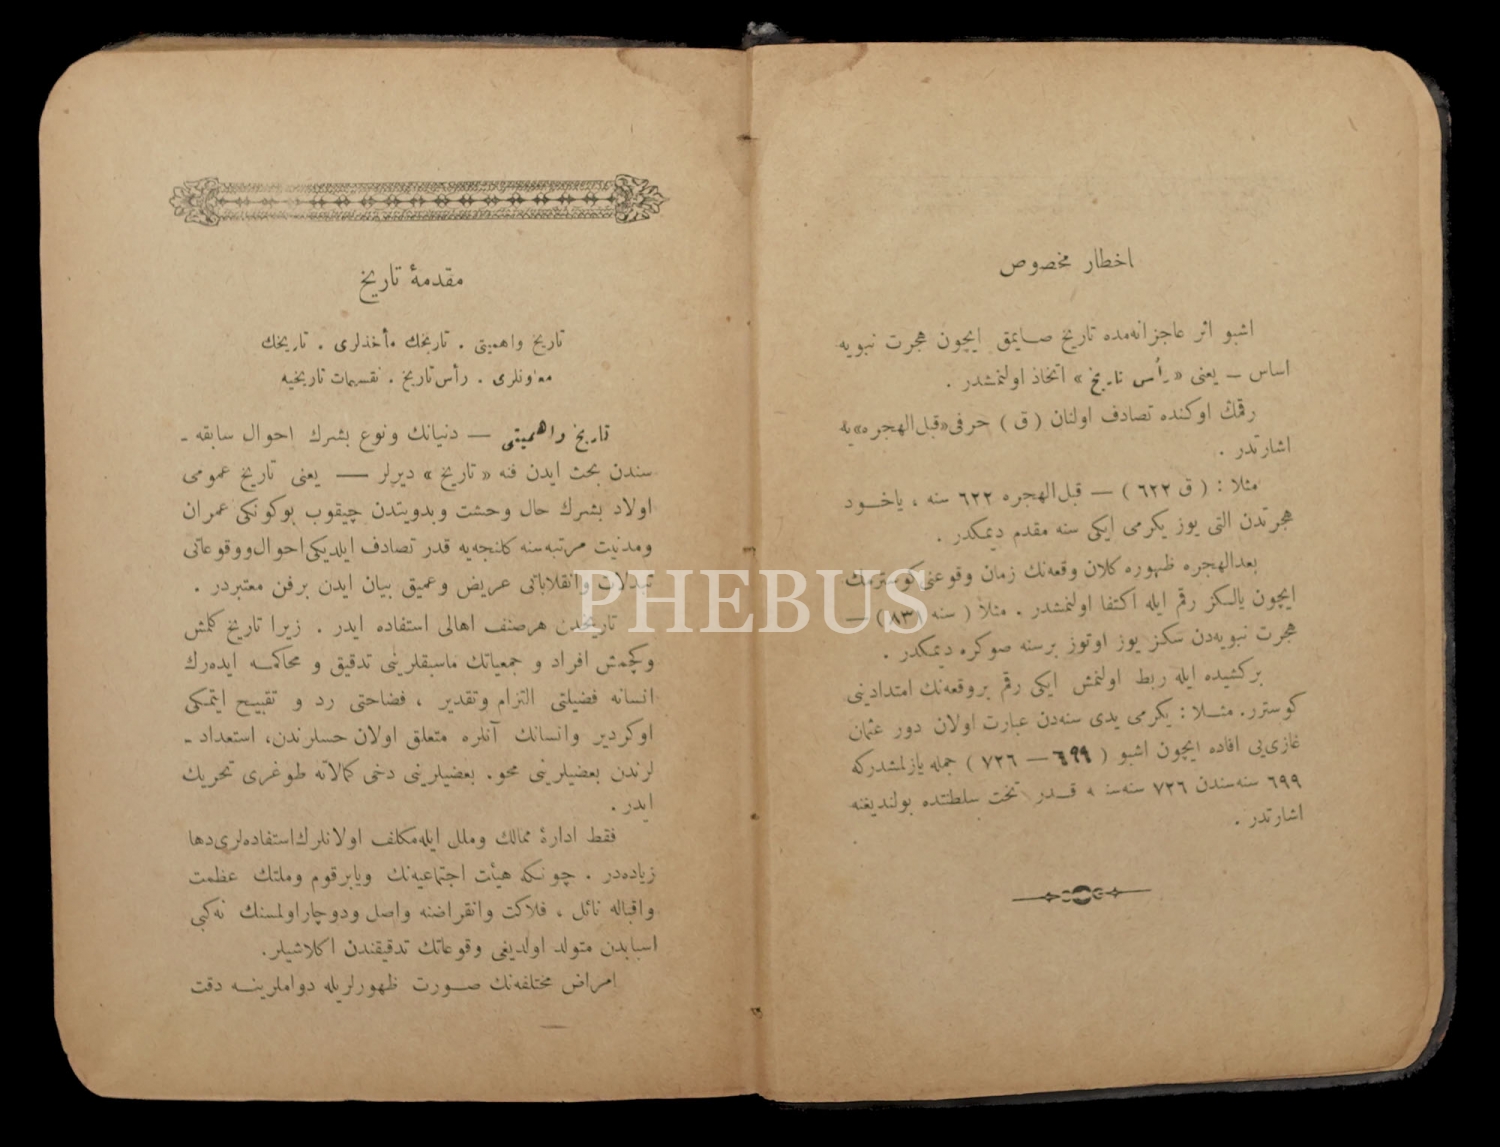 اخطار مخصوص
اشبو اثر عاجزانه‌مده تاریخ صایمق ایچون هجرت نبویه
اساس — یعنی « رأس تاریخ » اتخاذ اولنمشدر .
رقمڭ اوكنده تصادف اولنان ( ق ) حرفی «قبل الهجره» یه
اشارتدر .
مثلا : ( ق ٦٢٢ ) — قبل الهجره ٦٢٢ سنه ، یاخــود
هجرتدن التی یوز یكرمی ایكی سنه مقدم دیمكدر .
بعدالهجره ظهوره كلان وقعه‌نك زمان وقوعنی كوسترمك
ایچون یالـكز رقم ایله اكتفا اولنمشدر . مثلا ( سنه ٨٣١ ) —
هجرت نبویه‌دن سكز یوز اوتوز برسنه صوكره دیمكدر .
بركشیده ایله ربط اولنمش ایكی رقم بروقعه‌نك امتدادینی
كوسترر. مثــلا : یكرمی یدی سنه‌دن عبارت اولان دور عثمان
غازی‌یی افاده ایچون اشبو ( ٦٩٩ — ٧٢٦ ) جمله یازلمشدركه
٦٩٩ سنه‌سندن ٧٢٦ سنه‌سنه قــدر تخت سلطنتده بولندیغنه
اشارتدر .
مقدمهٔ تاریخ
تاریخ واهمیتی . تاریخك مأخذلری . تاریخك
معاونلری . رأس تاریخ . تقسیمات تاریخیه
تاریخ واهمیتی — دنیانك ونوع بشرك احوال سابقه ـ
سندن بحث ایدن فنه « تاریخ » دیرلر — یعنی تاریخ عمومی
اولاد بشرك حال وحشت وبدویتدن چیقوب بوكونكی عمران
ومدنیت مرتبه‌سنه كلنجه‌یه قدر تصادف ایلدیكی احوال ووقوعاتی
تبدلات وانقلاباتی عریض وعمیق بیان ایدن برفن معتبردر .
تاریخدن هرصنف اهالی استفاده ایدر . زیرا تاریخ كلمش
وكچمش افراد و جمعیاتك ماسبقلرینی تدقیق و محاكمــه ایده‌رك
انسانه فضیلتی التزام وتقدیر ، فضاحتی رد و تقبیــح ایتمـكی
اوكردیر وانسانك آنلره متعلق اولان حسلرندن، استعداد ـ
لرندن بعضیلرینی محو. بعضیلرینی دخی كمالاته طوغری تحریك
ایدر .
فقط ادارهٔ ممالك وملل ایله مكلف اولانلرك استفاده‌لری دها
زیاده‌در . چونـكه هیئت اجتماعیه‌نك ویابرقوم وملتك عظمت
واقباله نائل ، فلاكت وانقراضنه واصل ودوچاراولمسنك نه‌كبی
اسبابدن متولد اولدیغی وقوعاتك تدقیقندن اكلاشیلر.
امراض مختلفه‌نك صــورت ظهورلریله دواملرینــه دقت
PHEBUS